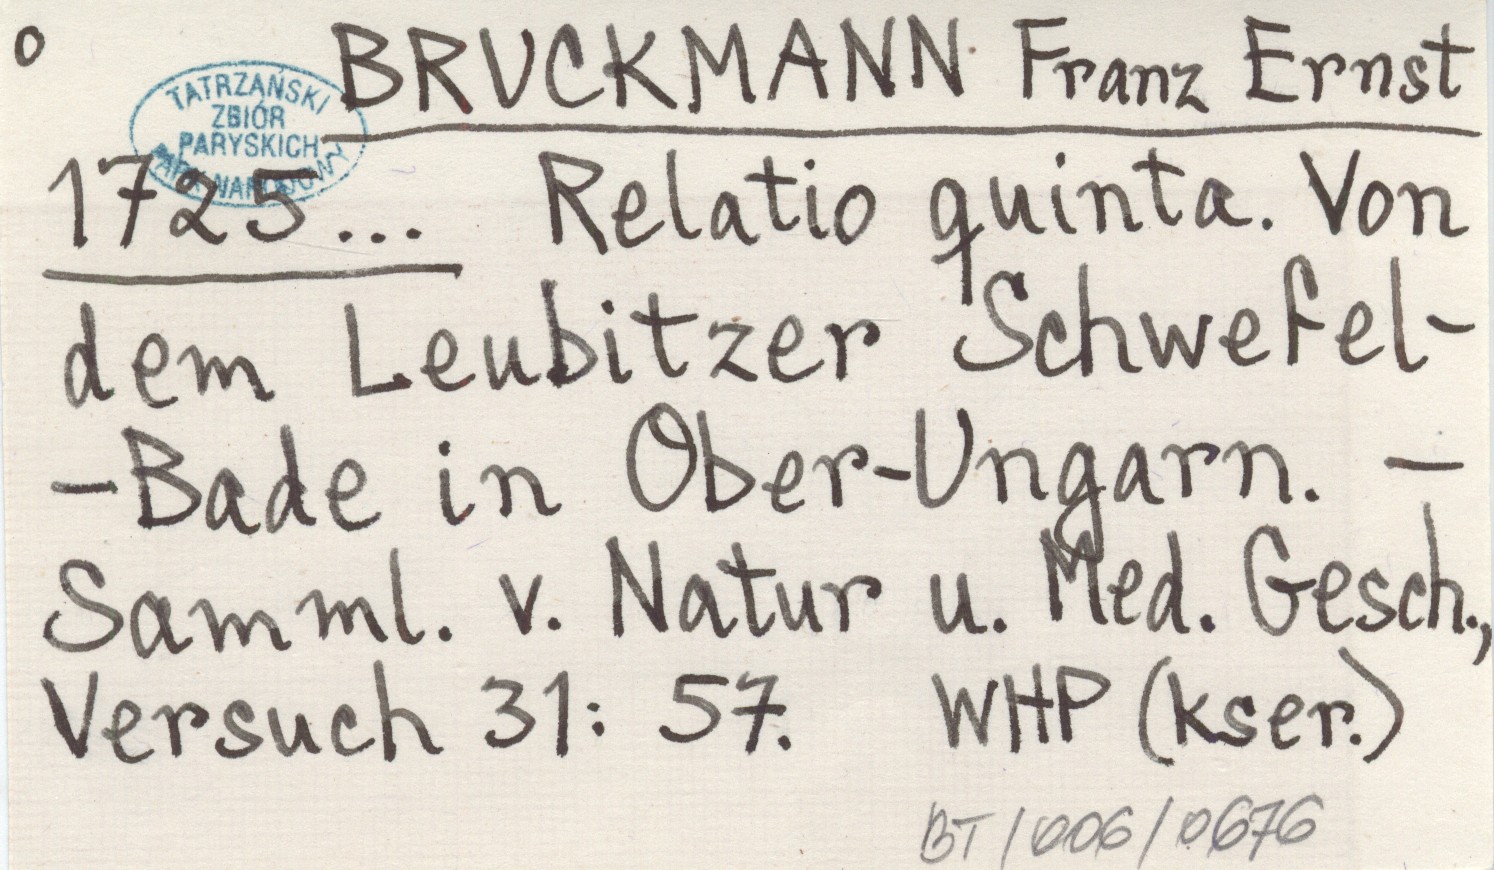 o BRUCKMANN Franz Ernst
TATRZAŃSKI
ZBIÓR
PARYSKICH
PARK NARODOWY
1725... Relatio quinta. Von
dem Leubitzer Schwefel-
-Bade in Ober-Ungarn. —
Samml. v. Natur u. Med. Gesch.,
Versuch 31: 57. WHP (kser.)
BT/006/0676